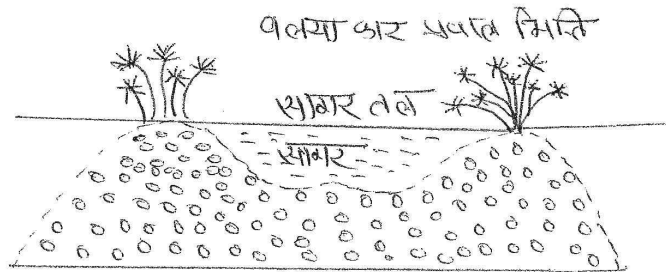 वलया कार प्रवाल भित्ति
सागर तल
सागर